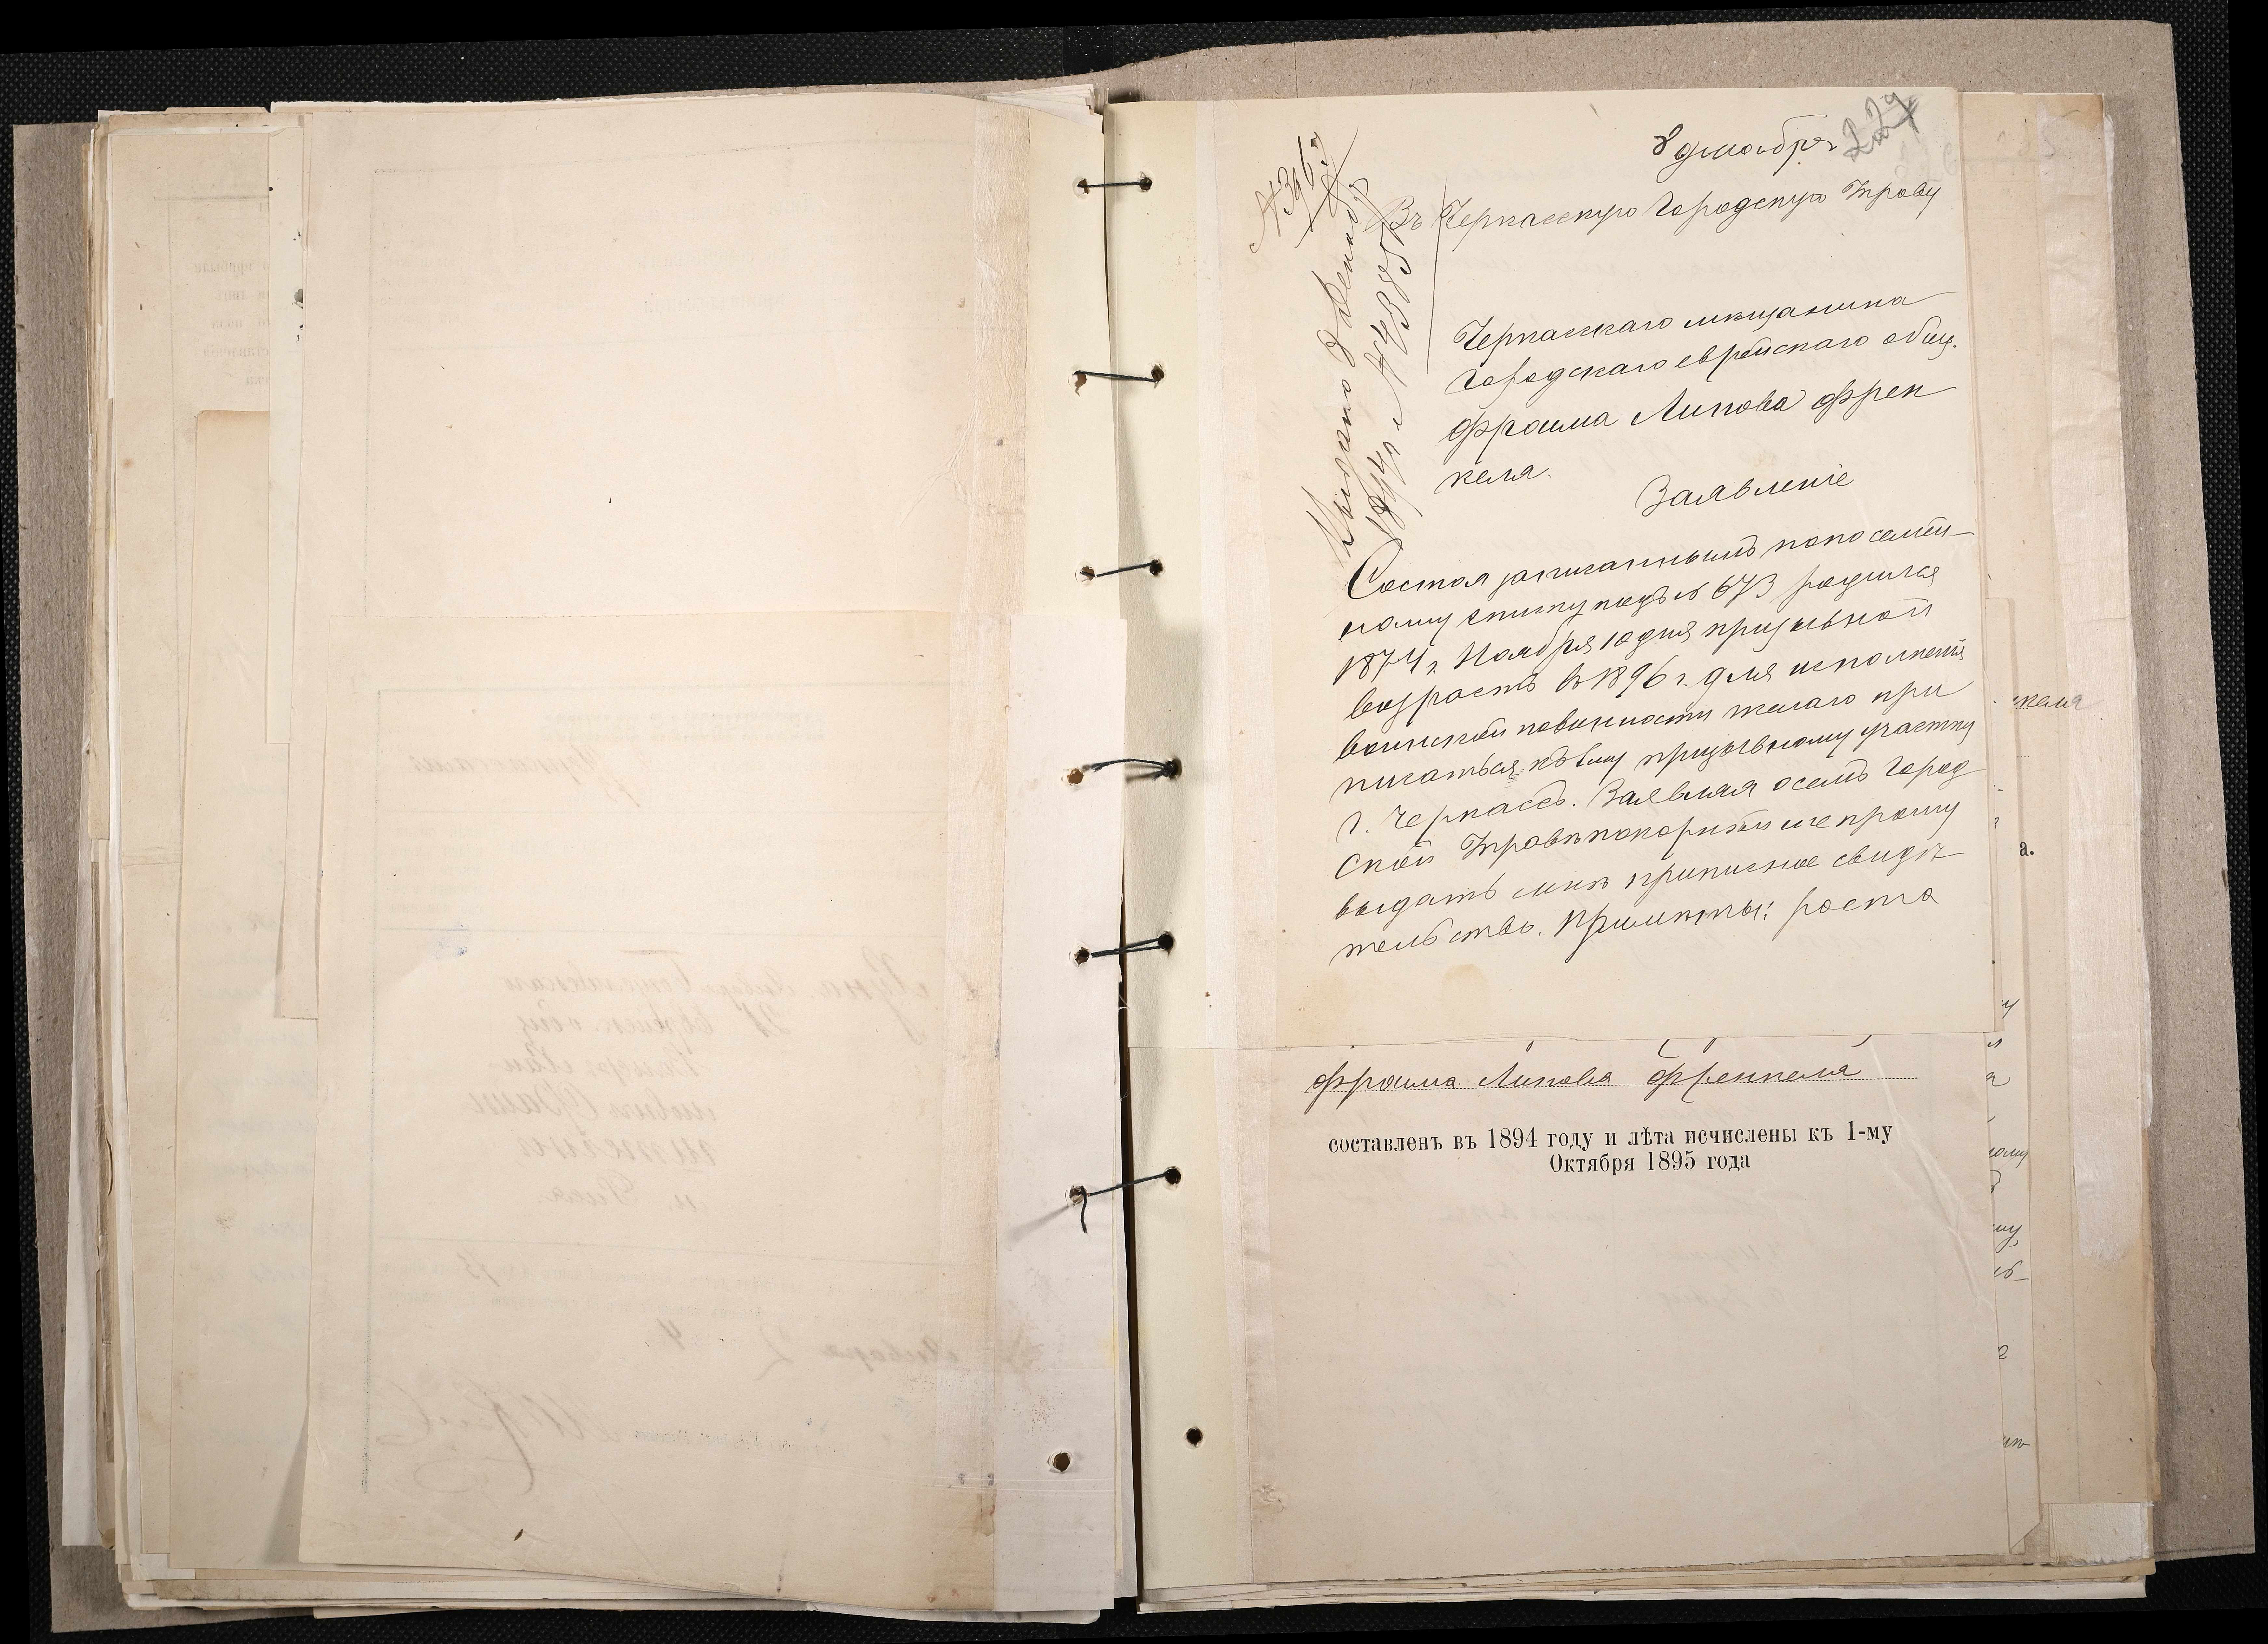 8 декабря
229
Въ Черкасскую Городскую Управу
Выдано 9 Декабря
1894 г. № 4385
Черкасскаго мѣщанина
Городскаго еврейскаго общ.
Фроима Липова Френ
келя.
Заявленіе
Состоя записаннымъ по посемей-
ному списку подъ № 673 родился
1874 г. Ноября 10 дня призывной
возрастъ въ 1896 г. для исполненія
воинской повинности желаю при
писаться къ 1му призывному участку
г. Черкассъ. Заявляя о семъ Город
ской Управѣ покорнѣйше прошу
выдать мнѣ приписное свидѣ
тельство. Примѣты: роста
Фроима Липова Френкеля
составленъ въ 1894 году и лѣта исчислены къ 1-му
Октября 1895 года
келя
а.